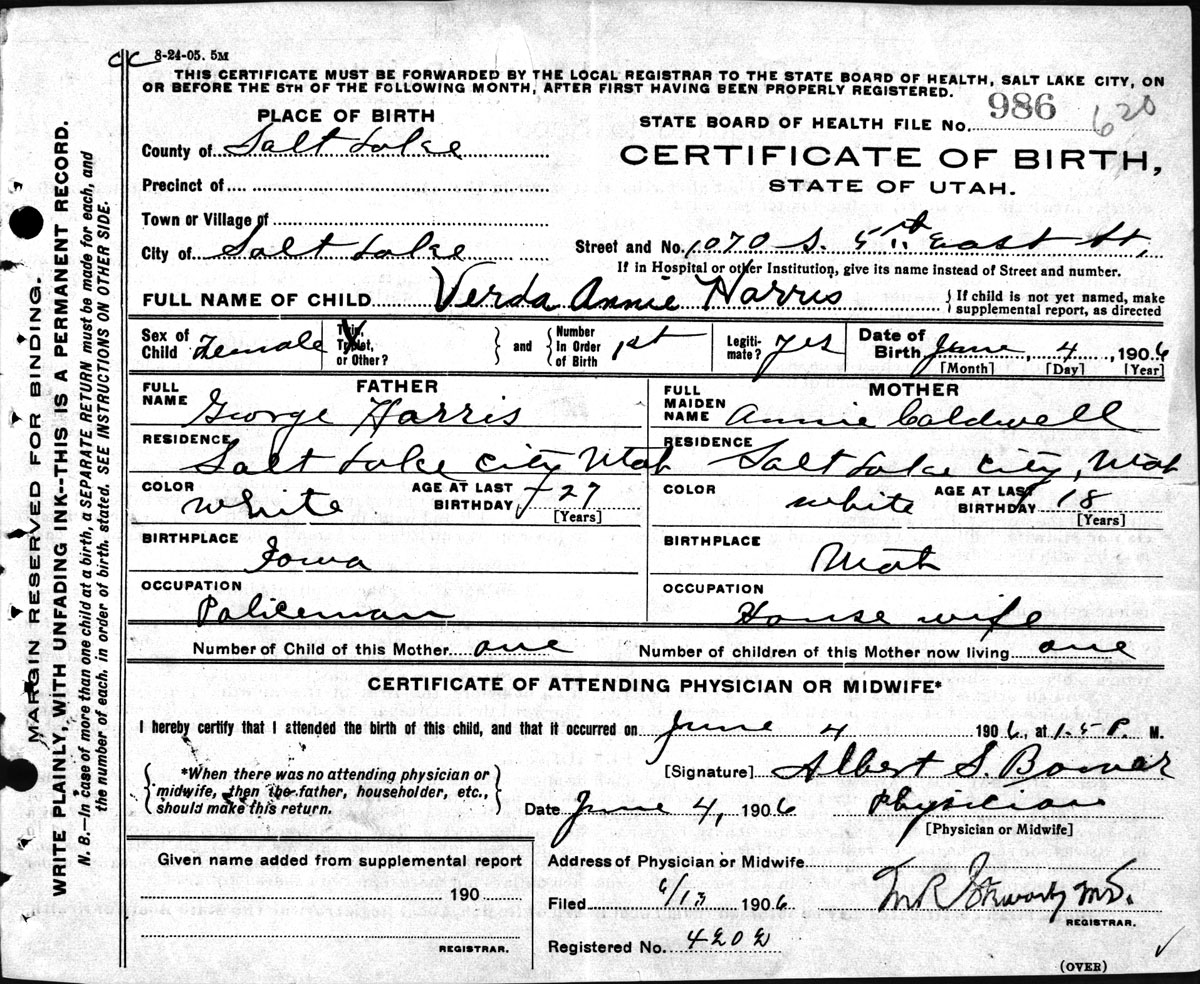 8-24-05. 5M
THIS CERTIFICATE MUST BE FORWARDED BY THE LOCAL REGISTRAR TO THE STATE BOARD OF HEALTH, SALT LAKE CITY, ON
OR BEFORE THE 5TH OF THE FOLLOWING MONTH, AFTER FIRST HAVING BEEN PROPERLY REGISTERED.
PLACE OF BIRTH
STATE BOARD OF HEALTH FILE No. 986 620
County of Salt Lake
CERTIFICATE OF BIRTH,
STATE OF UTAH.
Precinct of
Town or Village of
City of Salt Lake
Street and No. 1070 S. 5th East St,
If in Hospital or other Institution, give its name instead of Street and number.
FULL NAME OF CHILD Verda Annie Harris
If child is not yet named, make
supplemental report, as directed
Sex of
Child Female
Twin,
Triplet,
or Other?
and
Number
In Order
of Birth 1st
Legiti-
mate? Yes
Date of
Birth June 4, 1906
[Month] [Day] [Year]
FATHER
FULL
NAME George Harris
RESIDENCE
Salt Lake City Utah
COLOR
White
AGE AT LAST
BIRTHDAY 27
[Years]
BIRTHPLACE
Iowa
OCCUPATION
Policeman
MOTHER
FULL
MAIDEN
NAME Annie Caldwell
RESIDENCE
Salt Lake City, Utah
COLOR
white
AGE AT LAST
BIRTHDAY 18
[Years]
BIRTHPLACE
Utah
OCCUPATION
House wife
Number of Child of this Mother one
Number of children of this Mother now living one
CERTIFICATE OF ATTENDING PHYSICIAN OR MIDWIFE*
I hereby certify that I attended the birth of this child, and that it occurred on June 4 1906, at 1.5 P. M.
*When there was no attending physician or
midwife, then the father, householder, etc.,
should make this return.
[Signature] Albert S. Bower
Date June 4, 1906 Physician
[Physician or Midwife]
Given name added from supplemental report
190
REGISTRAR.
Address of Physician or Midwife
Filed 1906
REGISTRAR.
Registered No. 4202
(OVER)
MARGIN RESERVED FOR BINDING.
WRITE PLAINLY, WITH UNFADING INK--THIS IS A PERMANENT RECORD.
N. B.—In case of more than one child at a birth, a SEPARATE RETURN must be made for each, and
the number of each, in order of birth, stated. SEE INSTRUCTIONS ON OTHER SIDE.